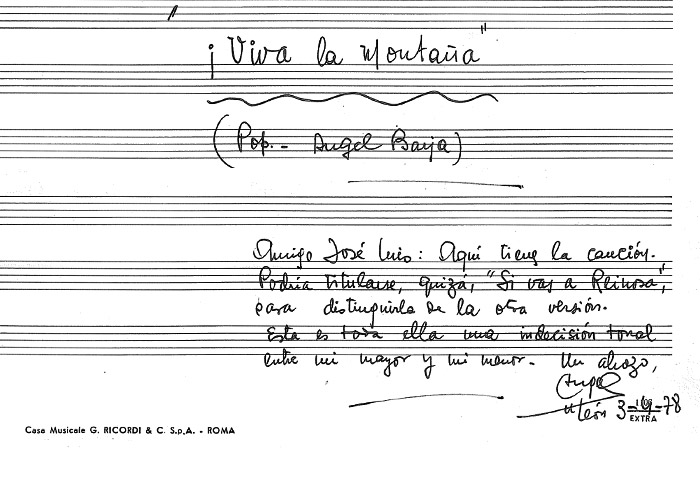 "¡Viva la Montaña"
(Pop.- Angel Barja)
Amigo José Luis: Aquí tienes la canción.
Podría titularse, quizá, "Si vas a Reinosa",
para distinguirla de la otra versión.
Esta es toda ella una indecisión tonal
entre mi mayor y mi menor. Un abrazo,
Angel
León 3- -78
EXTRA
Casa Musicale G. RICORDI & C. S.p.A. - ROMA